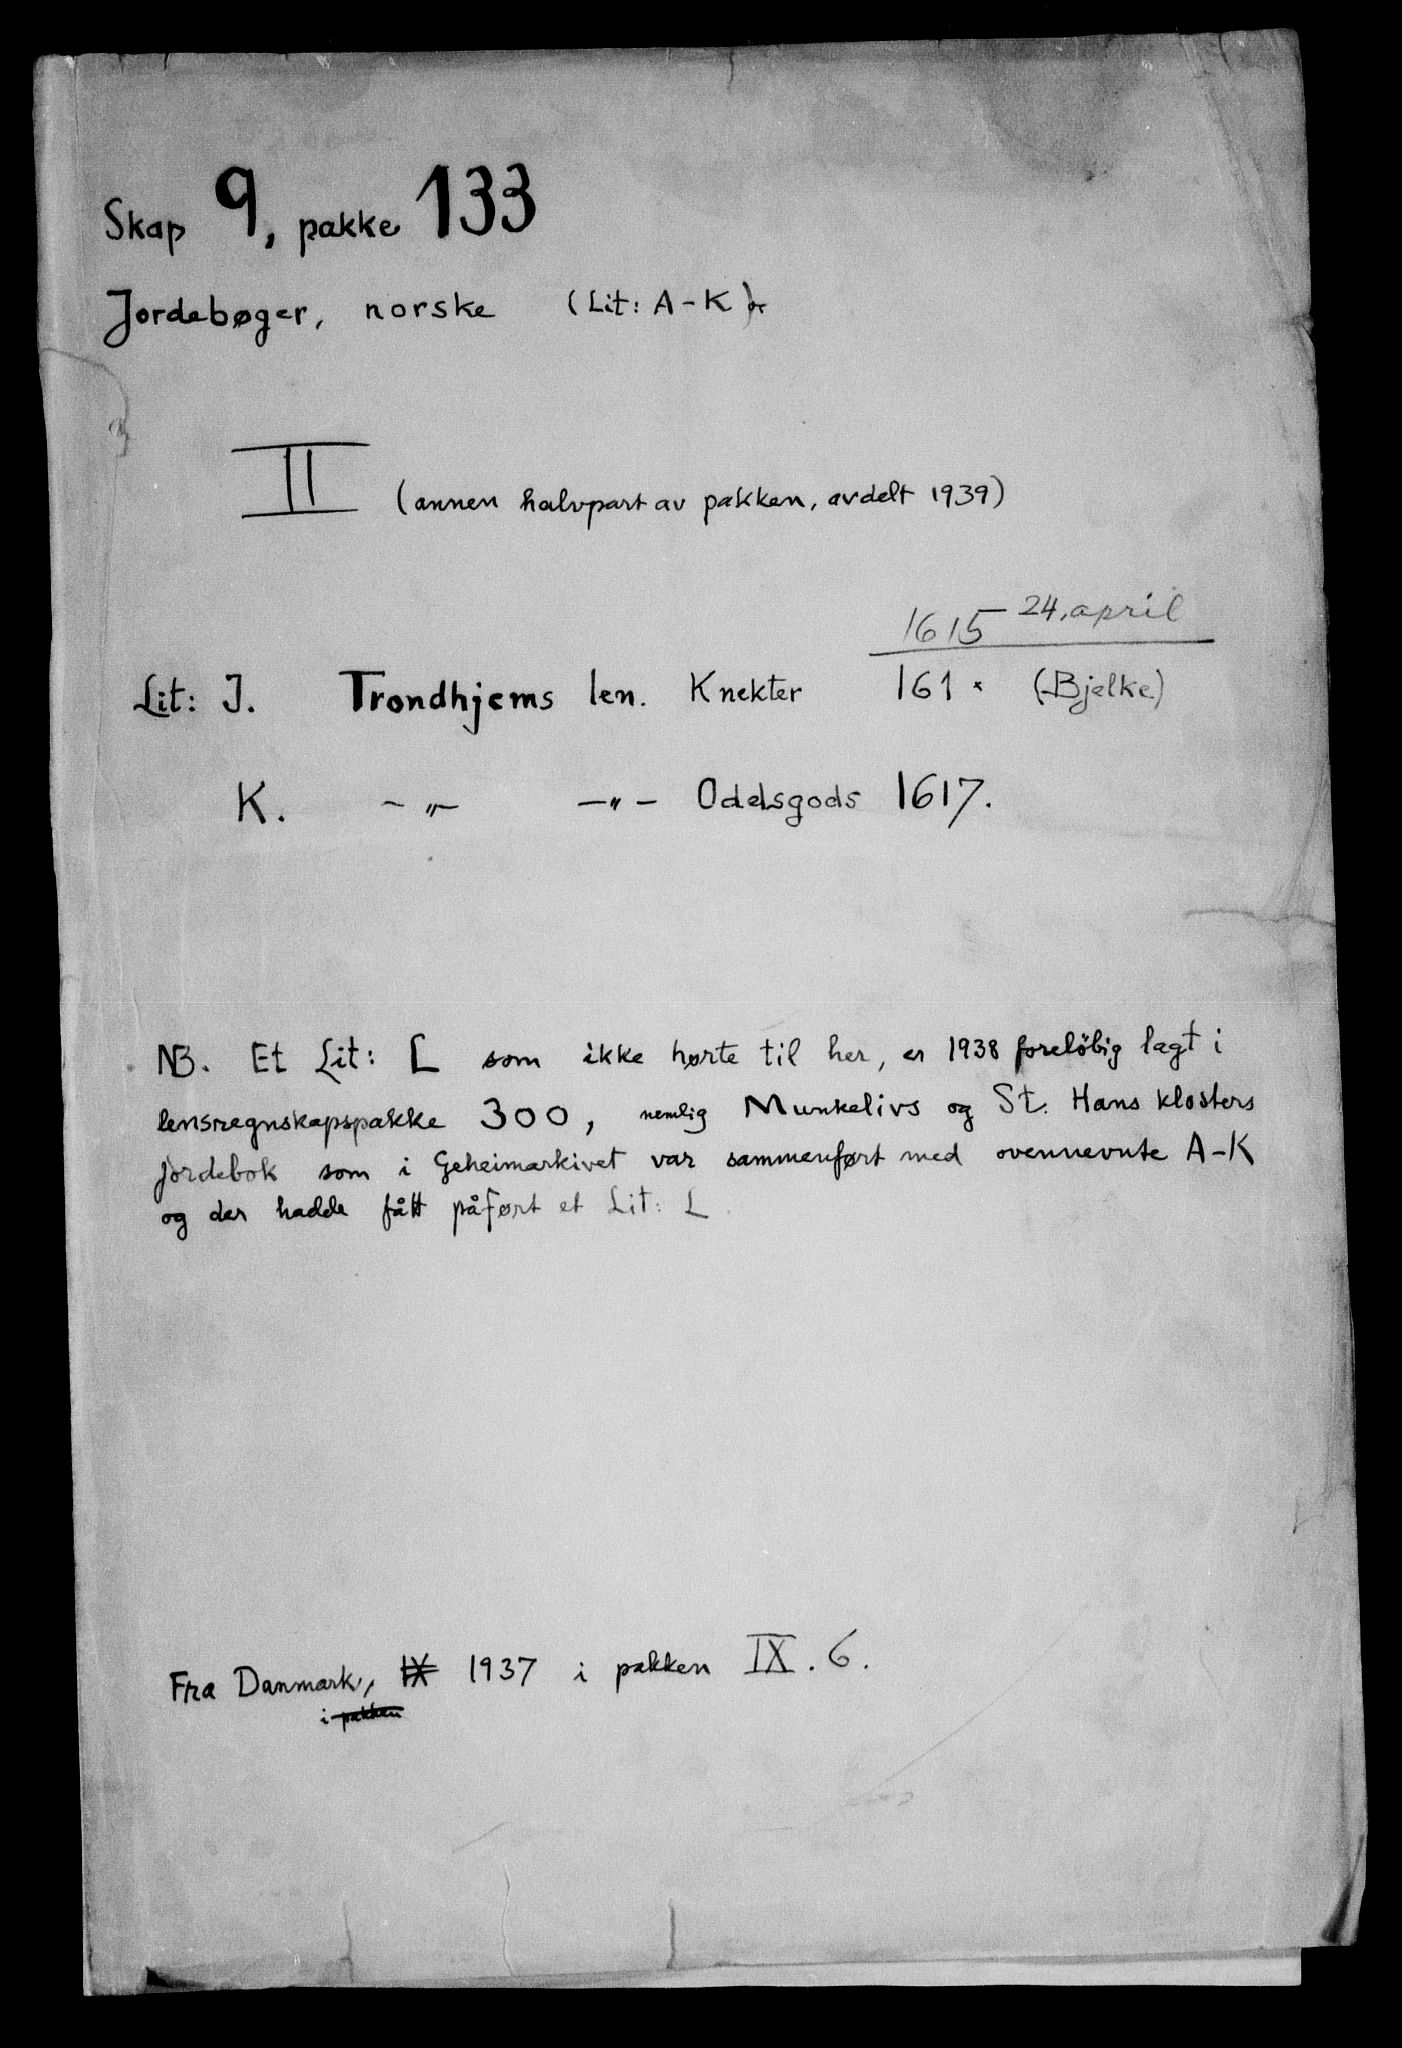 Skap 9, pakke 133
Jordebøger, norske (Lit: A-K)
II (annen halvpart av pakken, avdelt 1939)
1615 24. april
Lit: J. Trondhjems len. Knekter 161 × (Bjelke)
K. -„- -„- Odelsgods 1617.
NB. Et Lit: L som ikke hørte til her, er 1938 foreløbig lagt i
lensregnskapspakke 300, nemlig Munkelivs og St. Hans klosters
jordebok som i Geheimarkivet var sammenført med ovennevnte A-K
og der hadde fått påført et Lit: L
Fra Danmark, IX 1937 i pakken IX. 6.
i pakken